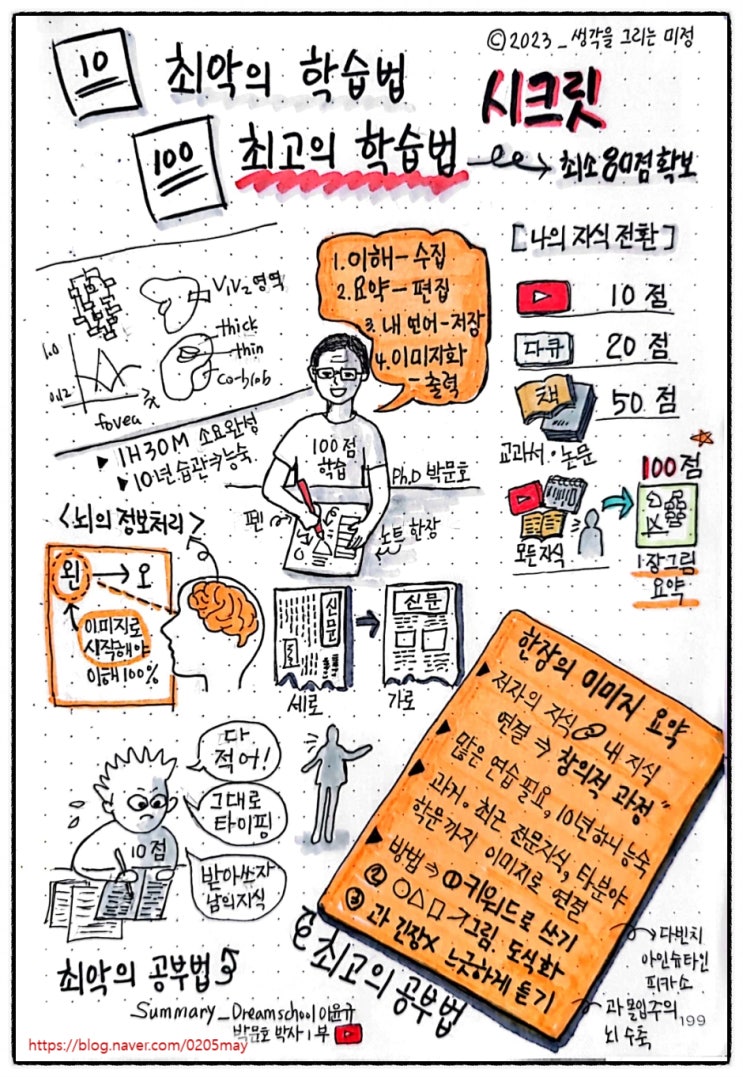 ©2023_생각을 그리는 미정
10 최악의 학습법
시크릿
100 최고의 학습법
최소 80점 확보
[나의 지식 전환]
10 점
다큐 20 점
책 50 점
교과서·논문
100점
모든 지식
1장 그림
요약
1. 이해 - 수집
2. 요약 - 편집
3. 내 언어 - 저장
4. 이미지화
- 출력
V1V2 영역
thick
thin
co-blob
1.0
fovea
▶ 1H30M 소요완성
▶ 10년 습관 → 능숙
100점
학습
Ph.D 박문호
펜
노트 한장
<뇌의 정보처리>
왼 → 오
이미지로
시작해야
이해 100%
신문
신문
세로
가로
한장의 이미지 요약
▶ 저자의 지식 내 지식
연결 ⇒ 창의적 과정"
▶ 많은 연습 필요, 10년하니 능숙
▶ 과거·최근 전문지식, 타분야
학문까지 이미지로 연결
▶ 방법 ⇒ ① 키워드로 쓰기
② ○△□↗그림, 도식화
③ 과긴장X 느긋하게 듣기
다빈치
아인슈타인
피카소
과몰입주의
뇌 수축
최고의 공부법
다
적어!
그대로
타이핑
받아쓰자
남의지식
10점
최악의 공부법
Summary_Dreamschool 이윤규
박문호 박사 1부
199
https://blog.naver.com/0205may